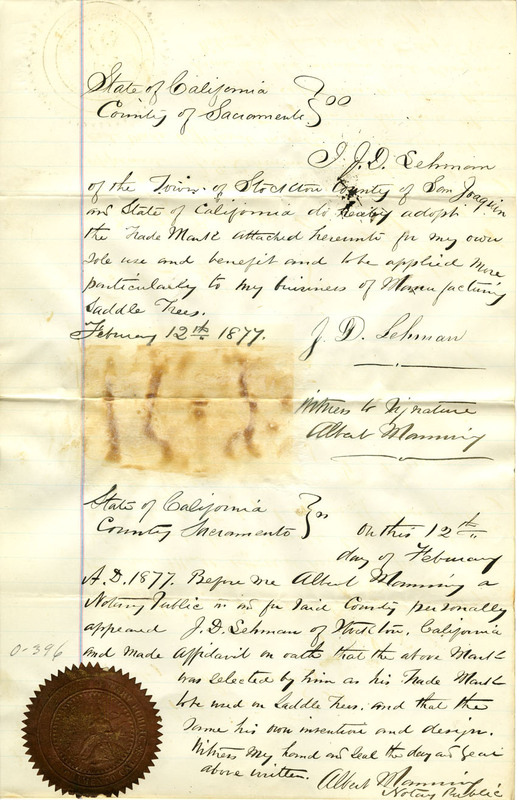 State of California } ss
County of Sacramento
I J. D. Lehman
of the Town of Stockton County of San Joaquin
and State of California do hereby adopt
the Trade Mark attached hereunto for my own
sole use and benefit and to be applied more
particularly to my business of Manufacturing
Saddle Trees.
Februay 12th 1877.
J. D. Lehman
Witness to Signature
Albert Manning
State of California } ss
County Sacramento
On this 12th
day of Februay
A.D. 1877. Before me Albert Manning a
Notary Public in and for said County personally
appeared J. D. Lehman of Stockton, California
and made affidavit on oath that the above Mark
was selected by him as his Trade Mark
to be used on Saddle Trees. and that the
same his own invention and design.
Witness my hand and seal the day and year
above written.
Albert Manning
Notary Public
0-396